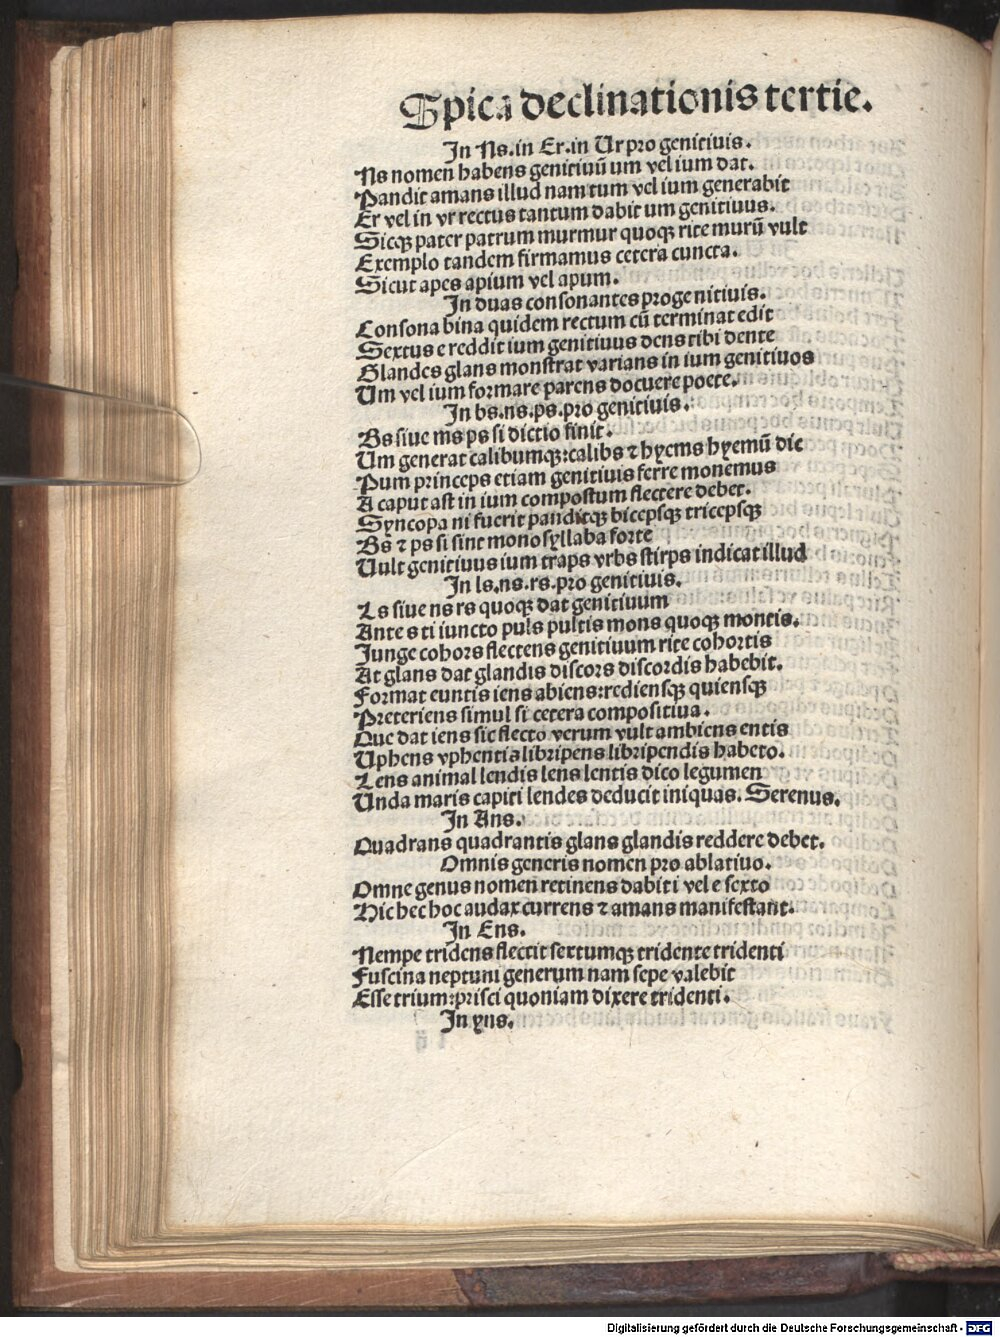 Spica declinationis tertie.
In Ns.in Er.in Ur pro genitivis.
Ns nomen habens genitiuū um vel ium dat.
Pandit amans illud nam tum vel ium generabit
Er vel in vr rectus tantum dabit um genitiuus.
Sicqꝫ pater patrum murmur quoqꝫ rite murū vult
Exemplo tandem firmamus cetera cuncta.
Sicut apes apium vel apum.
In duas consonantes pro genitiuis.
Consona bina quidem rectum cū terminat edit
Sextus e reddit ium genitiuus dens tibi dente
Glandes glans monstrat varians in ium genitiuos
Um vel ium formare parens docuere poete.
In bs.ns.ps.pro genitiuis.
Bs siue ms ps si dictio finit.
Um generat calibumqꝫ:calibs ⁊ hyems hyemū dic
Pum princeps etiam genitiuis ferre monemus
A caput ast in ium compostum flectere debet.
Syncopa ni fuerit panditqꝫ bicepsqꝫ tricepsqꝫ
Bs ⁊ ps si sint monosyllaba forte
Uult genitiuus ium traps vrbs stirps indicat illud
In ls.ns.rs.pro genitiuis.
Ls siue ns rs quoqꝫ dat genitiuum
Ante s ti iuncto puls pultis mons quoqꝫ montis.
Junge cohors flectens genitiuum rite cohortis
At glans dat glandis discors discordis habebit.
Format euntis iens abiens:rediensqꝫ quiensqꝫ
Preteriens simul si cetera compositiua.
Que dat iens sic flecto verum vult ambiens entis
Uphens vphentis libripens libripendis habeto.
Lens animal lendis lens lentis dico legumen
Unda maris capiti lendes deducit iniquas. Serenus.
In Ans.
Quadrans quadrantis glans glandis reddere debet.
Omnis generis nomen pro ablatiuo.
Omne genus nomen retinens dabit i vel e sexto
Hic hec hoc audax currens ⁊ amans manifestant.
In Ens.
Nempe tridens flectit sextumqꝫ tridente tridenti
Fuscina neptuni generum nam sepe valebit
Esse trium:prisci quoniam dixere tridenti.
In yns.
Digitalisierung gefördert durch die Deutsche Forschungsgemeinschaft - DFG